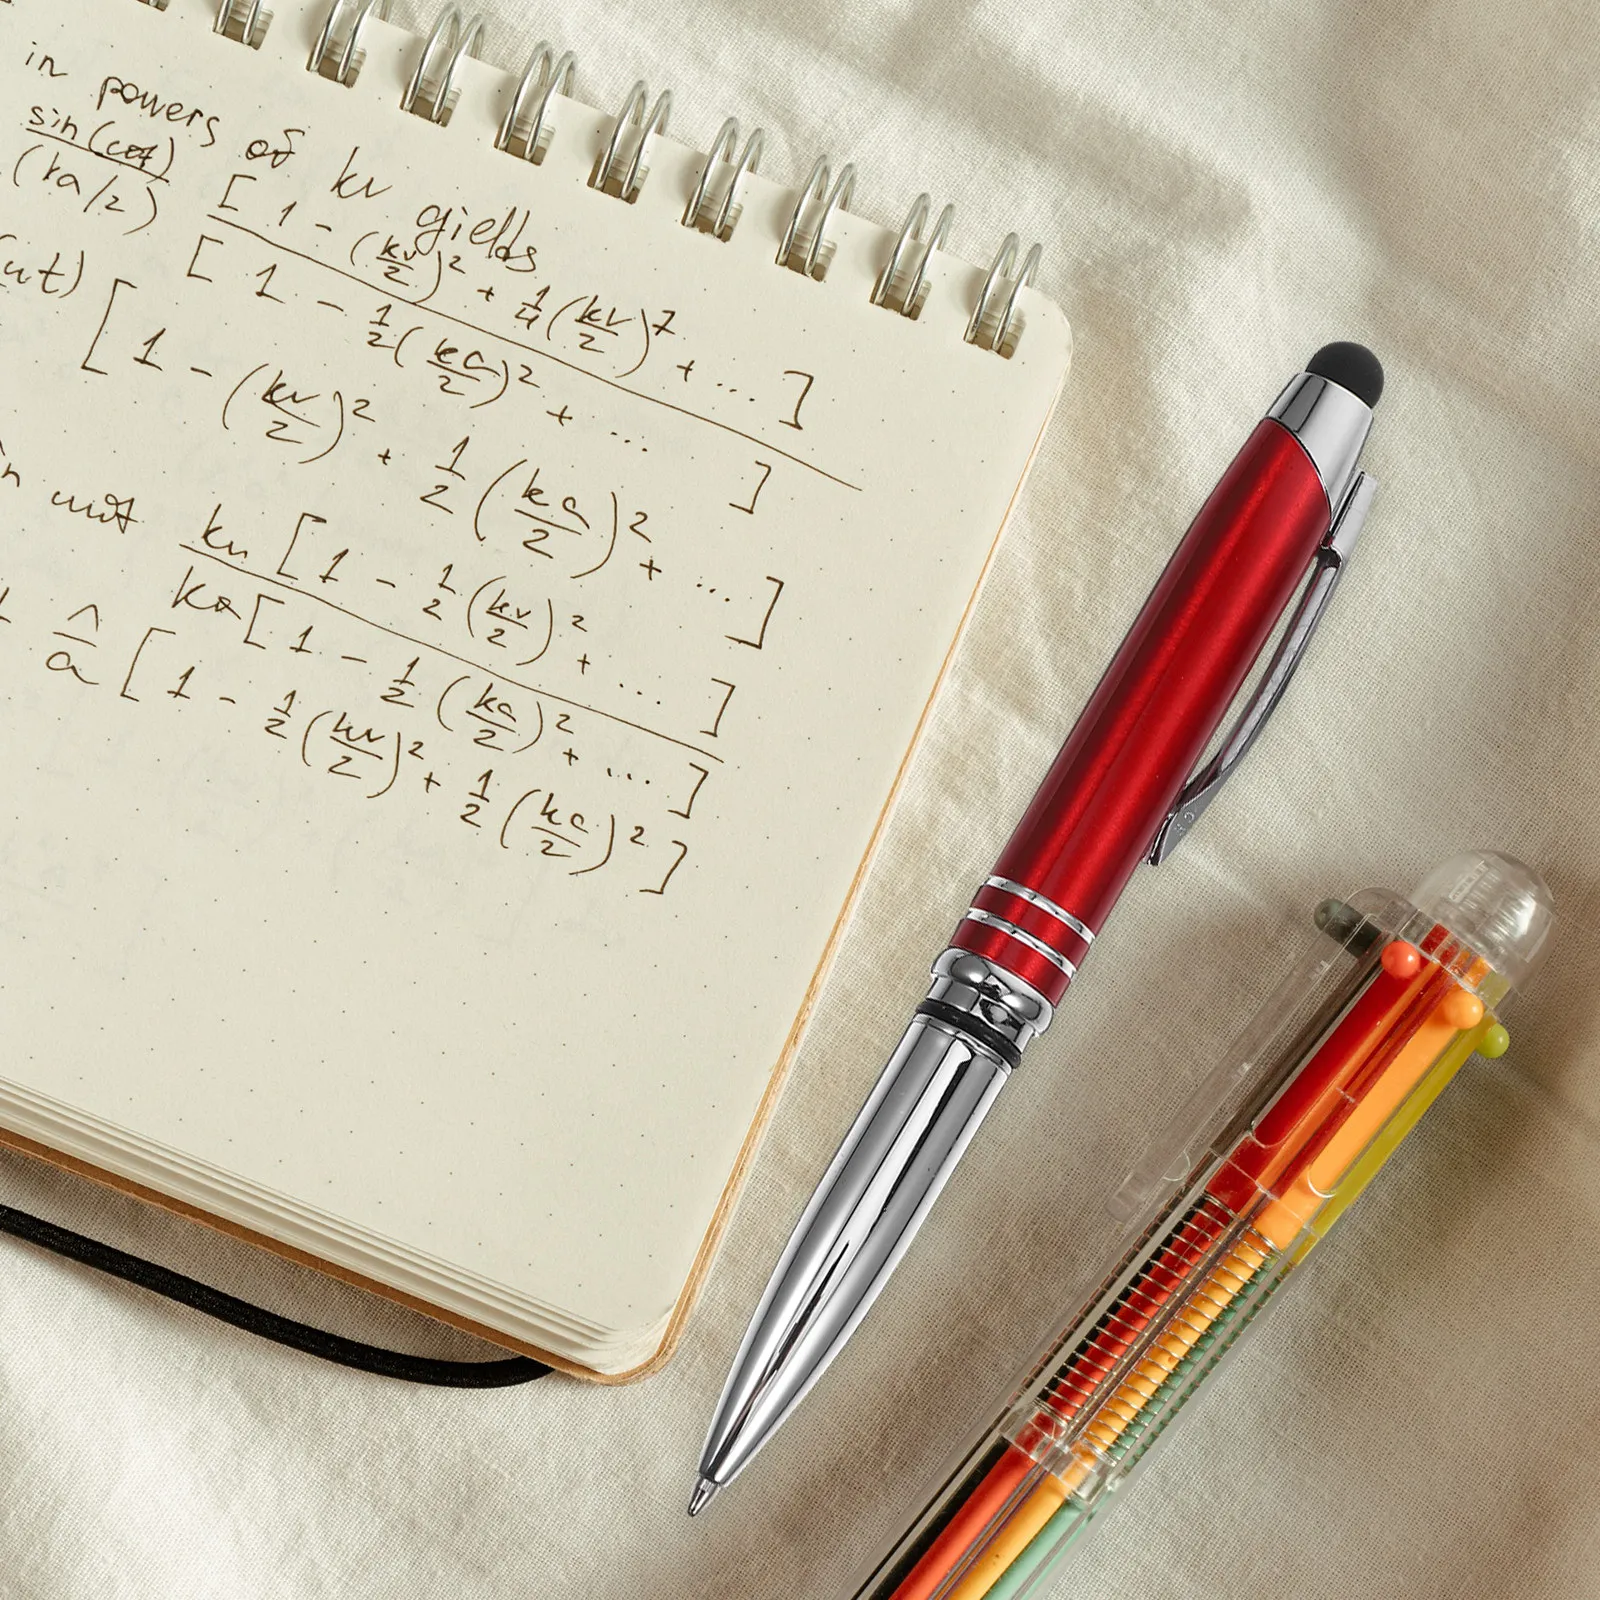 in powers of kv gields
sin(cot) / (ka/2) [1 - (kv/2)² + 1/4(kv/2)⁷ + ...] / [1 - 1/2(ka/2)² + ...]
ut) [1 - (kv/2)² + 1/2(ka/2)² + ...]
kv[1 - 1/2(kv/2)² + ...] / ka[1 - 1/2(ka/2)² + ...]
^/a [1 - 1/2(kv/2)² + 1/2(ka/2)²]